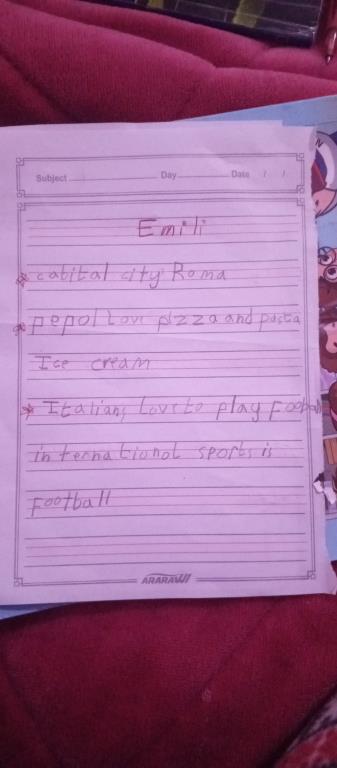 Subject Day Date / /
Emili
* cabital city Roma
* pepol love pizza and pasta
Ice cream
* Italians Love to play Football
international sports is
Football
ARARAWI